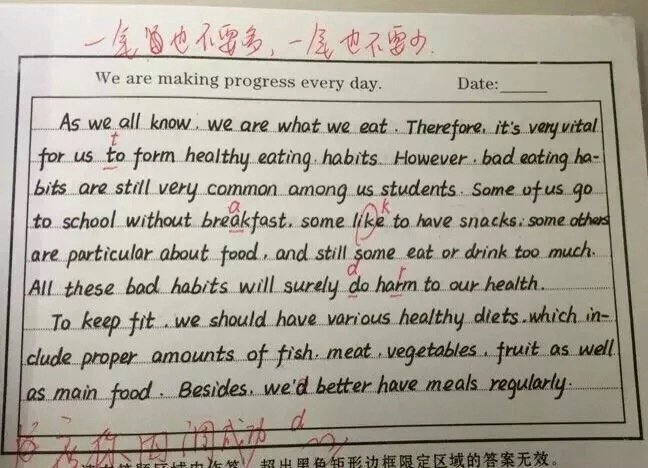 一尾也不要多，一尾也不要少.
We are making progress every day. Date:
As we all know, we are what we eat. Therefore, it's very vital
t
for us to form healthy eating habits. However, bad eating ha-
bits are still very common among us students. Some of us go
a k
to school without breakfast, some like to have snacks; some others
are particular about food, and still some eat or drink too much.
d r
All these bad habits will surely do harm to our health.
To keep fit, we should have various healthy diets, which in-
clude proper amounts of fish, meat, vegetables, fruit as well
as main food. Besides, we'd better have meals regularly.
d
成功
超出黑色矩形边框限定区域的答案无效。